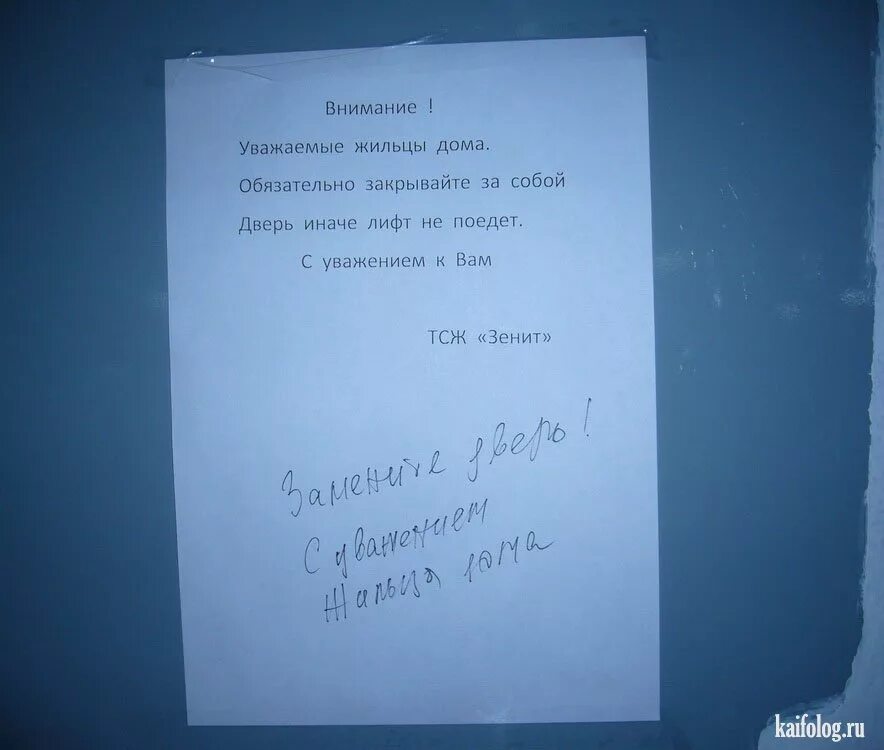 Внимание !
Уважаемые жильцы дома.
Обязательно закрывайте за собой
Дверь иначе лифт не поедет.
С уважением к Вам
ТСЖ «Зенит»
Замените дверь!
С уважением
Жильцы дома
kaifolog.ru